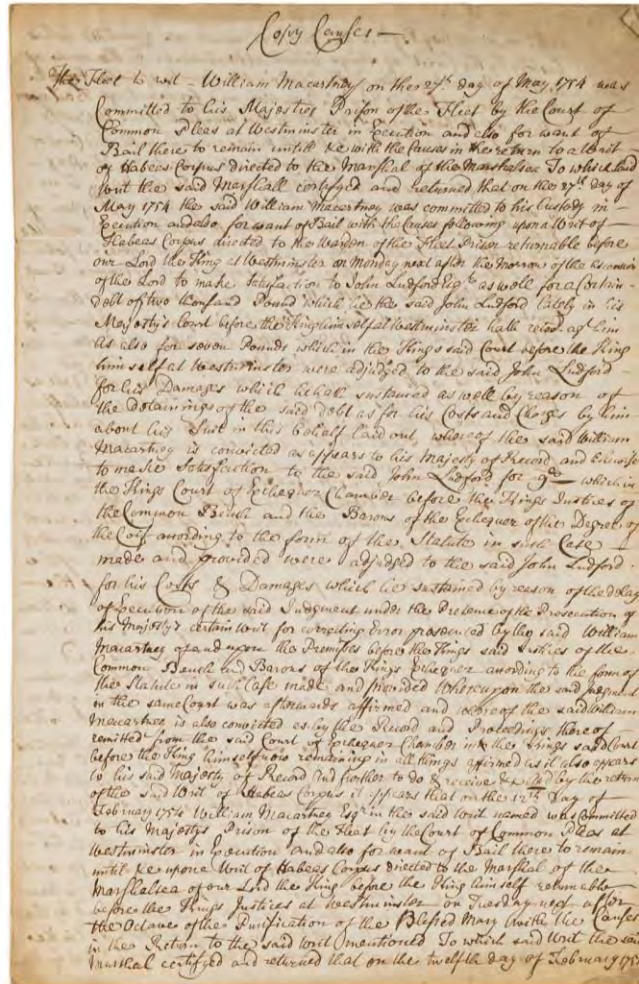 Copy Causes
The Fleet to wit - William Macartney on the 27th day of May 1754 was
Committed to his Majesties Prison of the Fleet by the Court of
Common Pleas at Westminster in Execution and also for want of
Bail there to remain untill &c with the Causes in the return to a Writ
of Habeas Corpus directed to the Marshal of the Marshalsea To which said
Writ the said Marshall certifyed and returned that on the 27th day of
May 1754 the said William Macartney was committed to his Custody in
Execution and also for want of Bail with the Causes following upon a Writ of
Habeas Corpus directed to the Warden of the Fleet Prison returnable before
our Lord the King at Westminster on Monday next after the Morrow of the Ascension
of the Lord to make Satisfaction to John Ludford Esqr. as well for a Certain
debt of two thousand Pound which he the said John Ludford lately in his
Majesty's Court before the King himself at Westminster hath recod. agt. him
as also for seven Pounds which in the Kings said Court before the King
himself at Westminster were adjudged to the said John Ludford
for his Damages which he hath sustained as well by reason of
the detaining of the said debt as for his Costs and Charges by him
about his Suit in this behalf laid out, whereof the said William
Macartney is convicted as appears to his Majesty of Record and likewise
to make Satisfaction to the said John Ludford for which in
the Kings Court of Exchequer Chamber before the Kings Justices of
the Common Bench and the Barons of the Exchequer of the Degree of
the Coif according to the form of the Statute in such Case
made and provided were adjudged to the said John Ludford
for his Costs & Damages which he sustained by reason of the delay
of Execution of the said Judgment under the Pretence of the Prosecution of
his Majesty's certain Writ for correcting Error prosecuted by the said William
Macartney of and upon the Premises before the Kings said Justices of the
Common Bench and Barons of the Kings Exchequer according to the form of
the Statute in such Case made and provided Whereupon the said Judgment
in the same Court was afterwards affirmed and whereof the said William
Macartney is also convicted as by the Record and Proceedings thereof
remitted from the said Court of Exchequer Chamber into the Kings said Court
before the King himself now remaining in all things affirmed as it also appears
to his said Majesty of Record And further to do & receive &c And by the return
of the said Writ of Habeas Corpus it appears that on the 12th Day of
February 1754 William Macartney Esqr in the said Writ named was Committed
to his Majestys Prison of the Fleet by the Court of Common Pleas at
Westminster in Execution and also for want of Bail there to remain
until &c upon a Writ of Habeas Corpus directed to the Marshal of the
Marshalsea of our Lord the King before the King himself returnable
before the Kings Justices at Westminster on Tuesday next after
the Octave of the Purification of the Blessed Mary with the Causes
in the Return to the said Writ mentioned To which said Writ the said
Marshal certifyed and returned that on the twelfth day of February